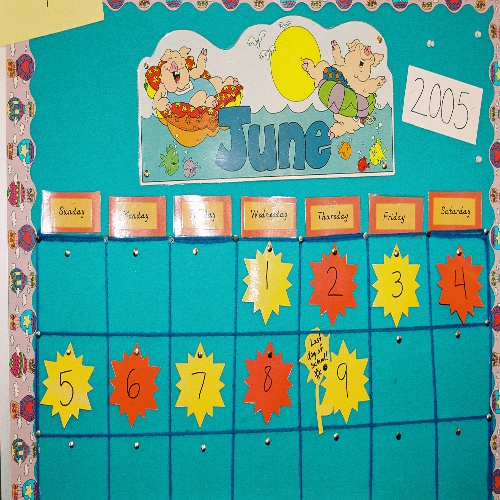 June
2005
Sunday Monday Tuesday Wednesday Thursday Friday Saturday
1 2 3 4
5 6 7 8 9
Last
day of
school!